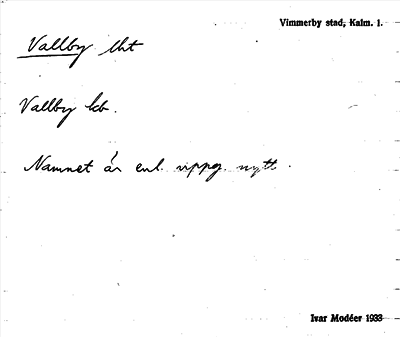 Vimmerby stad, Kalm. l.
Vallby lht
Vallby lcb.
Namnet är enl. uppg. nytt.
Ivar Modéer 1933